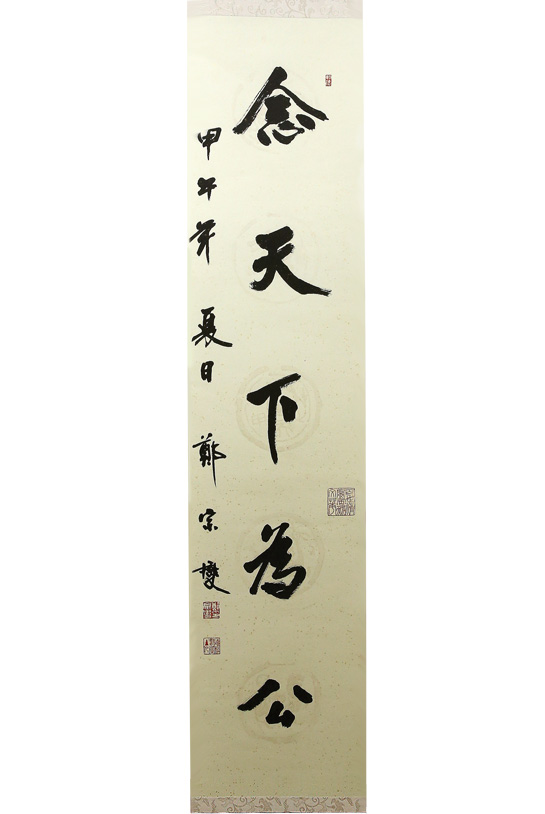 念天下為公
甲午年 夏日 鄭宗